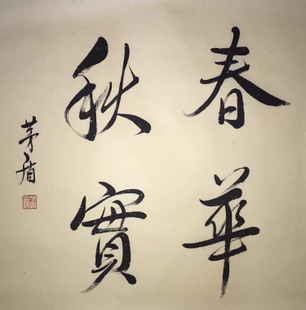 春華
秋實
茅盾